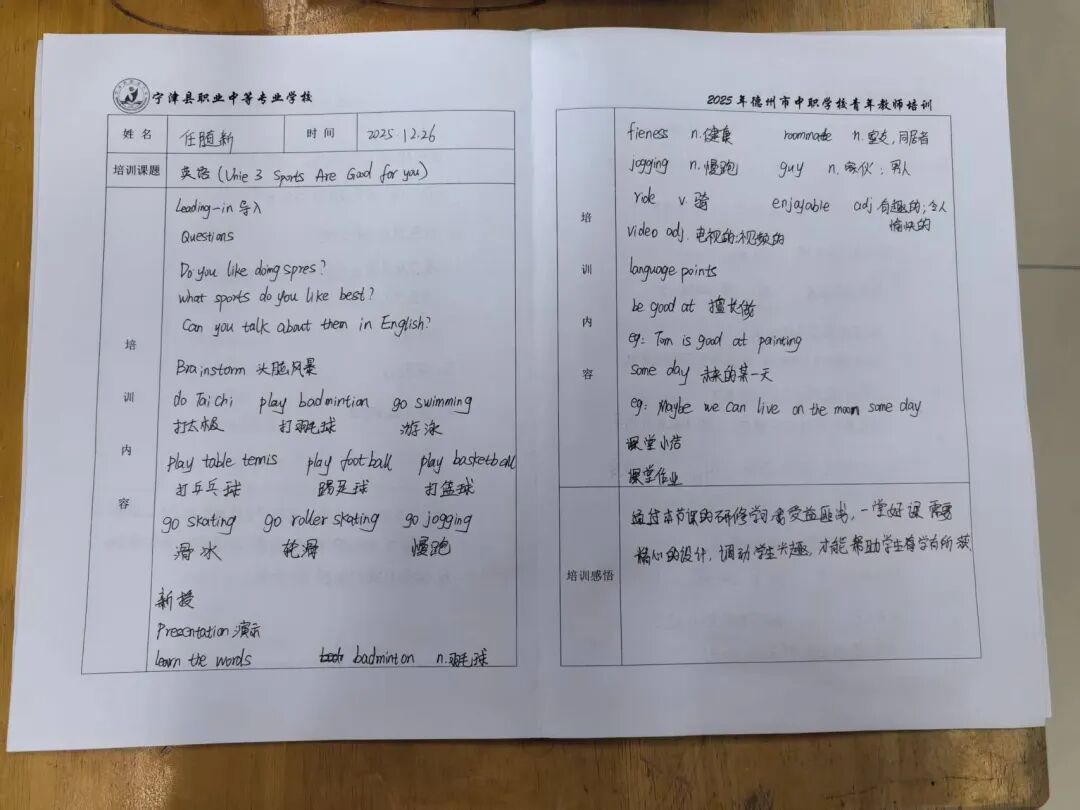 宁津县职业中等专业学校
姓名 任随新 时间 2025.12.26
培训课题 英语 (Unie 3 Sports Are Good for you)
培训内容
Leading-in 导入
Questions
Do you like doing spres?
what sports do you like best?
Can you talk about them in English?
Brainstorm 头脑风暴
do Tai chi play badmintion go swimming
打太极 打羽毛球 游泳
play table temis play football play basketball
打乒乓球 踢足球 打篮球
go skating go roller skating go jogging
滑冰 轮滑 慢跑
新授
Presentation 演示
learn the words badminton n.羽毛球
2025年德州市中职学校青年教师培训
培训内容
fieness n.健康 roommate n.室友,同居者
jogging n.慢跑 guy n.家伙;男人
ride v.骑 enjoyable adj.有趣的;令人
愉快的
video adj.电视的;视频的
language points
be good at 擅长做
eg: Tom is good at painting
some day 未来的某一天
eg: Maybe we can live on the moon some day
课堂小结
课堂作业
培训感悟
通过本节课的研修学习受益匪浅,一堂好课需要
精心的设计,调动学生兴趣,才能帮助学生有所获